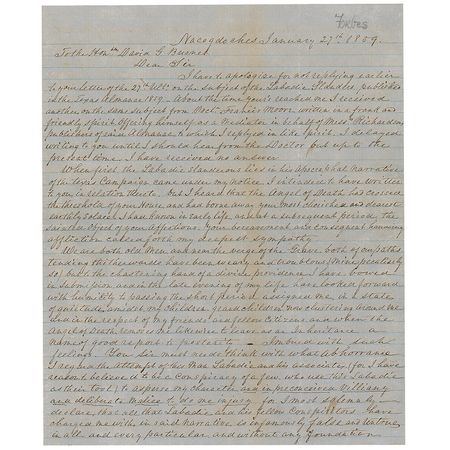 Forbes
Nacogdoches January 27th 1859.
To the Honble David G Burnet
Dear Sir
I have to apologise for not replying earlier
to your letter of the 27th Ult on the subject of the Labadie Slanders, published
in the Texas Almanac 1859. About the time yours reached me I received
another on the same subject from Doctr Francis Moore written in a frank and
friendly spirit offering himself as a Mediator in behalf of Mess Richardson
publishers of said Almanac to which I replied in like Spirit. I delayed
writing to you until I should hear from the Doctor but up to the
present time I have received no answer.
When first the Labadie slanderous lies in his apocryphal narrative
of the Texas Campaign came under my notice, I intended to have written
to you in relation thereto. But I heard that the Angel of Death had crossed
the threshold of your House and had borne away your most cherished and dearest
earthly Solace. I had known in early life and at a subsequent period, the
sainted object of your affections. Your bereavement and consequent
affliction called forth my deepest sympathy.
We are both old Men and near the verge of the Grave both of our paths
tending thitherwards have been weary and troublous (Mine peculiarly
so) but to the chastening hand of a divine providence I have bowed
in submission and in the late evening of my life have looked forward
with humility to passing the short period assigned me in a state
of quietude, amidst my children, grandchildren now clustering around me
and in the respect of my friends and fellow Citizens and when the
angel of Death removes me likewise to leave as an Inheritance a
name of good report to posterity - Imbued with such
feelings. You Sir must needs think with what abhorrence
I regard the attempt of this Man Labadie and his associates (for I have
reason to believe it to be a Conspiracy of a few who use this Labadie
as their tool) to asperse my character and in preconceived Villiany
and deliberate Malice to do me injury for I most solemnly
declare, that all that Labadie and his fellow Conspirators have
charged me with in said narrative is infamously false and untrue,
in all and every particular and without any foundation